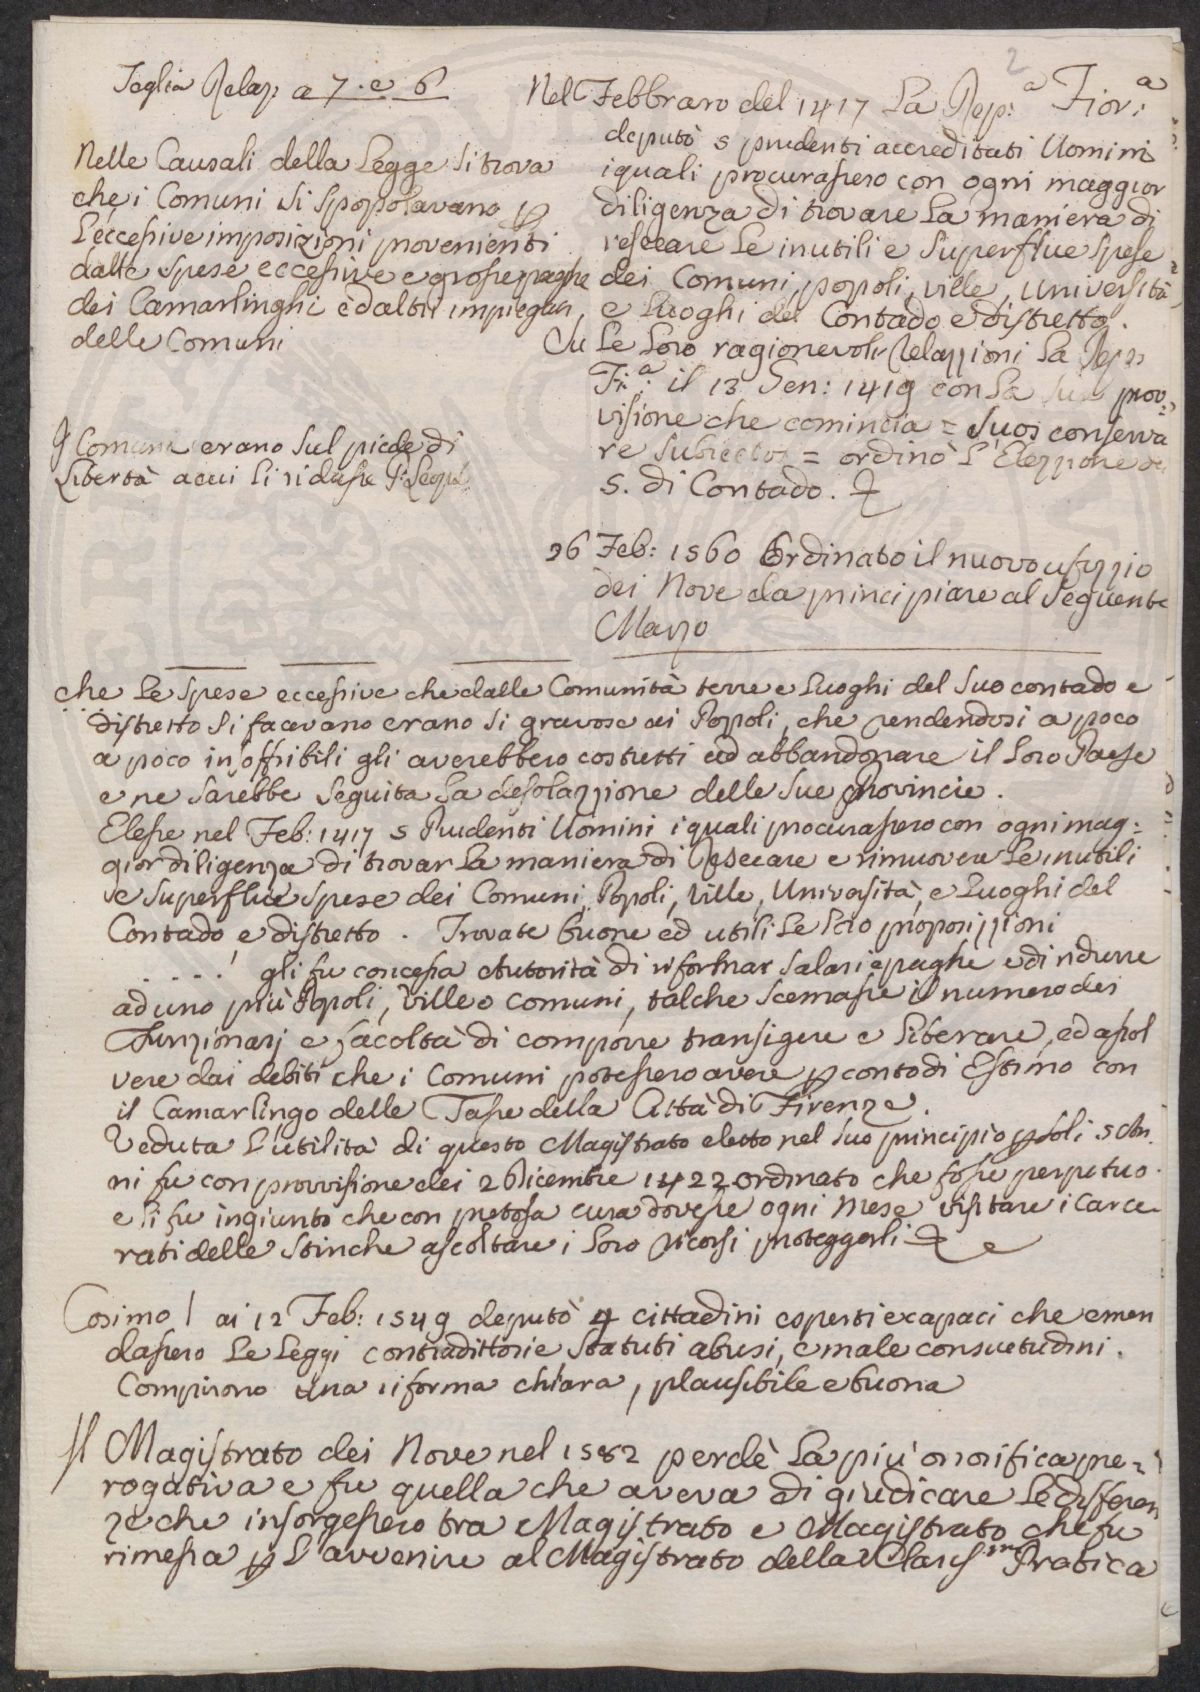 2
Taglia Relaz: a 7. e 6
Nelle Causali della Legge si trova
che i Comuni si spopolavano p
L'eccessive imposizioni provenienti
dalle spese eccessive e grosse paghe
dei Camarlinghi e d'altri impiegati,
delle Comuni
Comuni erano sul piede di
Libertà a cui li ridusse
Nel Febbraro del 1417 La Rep:a Fior:a
deputò 5 prudenti accreditati Uomini
i quali procurassero con ogni maggior
diligenza di trovare La maniera di
resecare Le inutili e superflue spese
dei Comuni, popoli, ville, università
e Luoghi del Contado e distretto.
Su Le Loro ragionevoli Relazzioni La Rep:
Fi:a il 13 Gen: 1419 con La sua prov:
visione che comincia = Suos conserva
re subiectos = ordinò L'Elezzione de
5. di Contado.
26 Feb: 1560 Ordinato il nuovo ufizzio
dei Nove da principiare al seguente
Marzo
che Le spese eccessive che dalle Comunità terre e Luoghi del suo contado e
distretto si facevano erano si gravose ai Popoli, che rendendosi a poco
a poco insoffribili gli averebbero costretti ad abbandonare il Loro Paese
e ne sarebbe seguita La desolazzione delle sue Provincie.
Elesse nel Feb: 1417 5 Prudenti Uomini i quali procurassero con ogni mag:
gior diligenza di trovar La maniera di Resecare e rimuovere Le inutili
e superflue spese dei Comuni, Popoli, Ville, Università, e Luoghi del
Contado e distretto. Trovate buone ed utili Le Loro proposizzioni
. . . . . gli fu concessa Autorità di riformar salari e paghe e di ridurre
ad uno più Popoli, Ville o Comuni, talche scemasse il numero dei
Funzionarj e facoltà di comporre transigere e Liberare, ed assol
vere dai debiti che i Comuni potessero avere p conto di Estimo con
il Camarlingo delle Tasse della Città di Firenze.
Veduta L'utilità di questo Magistrato eletto nel suo principio p soli 5 An
ni fu con provvisione dei 2 Dicembre 1422 ordinato che fosse perpetuo
e li fu ingiunto che con pietosa cura dovesse ogni Mese visitare i Carce
rati delle Stinche ascoltare i Loro ricorsi proteggerli
Cosimo I ai 12 Feb: 1549 deputò 4 cittadini esperti e capaci che emen
dassero Le Leggi contradittorie Statuti abusi, e male consuetudini.
Compirono una riforma chiara, plausibile e buona
Il Magistrato dei Nove nel 1582 perdè La più onorifica pre:
rogativa e fu quella che aveva di giudicare Le differen
ze che insorgessero tra Magistrato e Magistrato che fu
rimessa p L'avvenire al Magistrato della Claris:ma Pratica